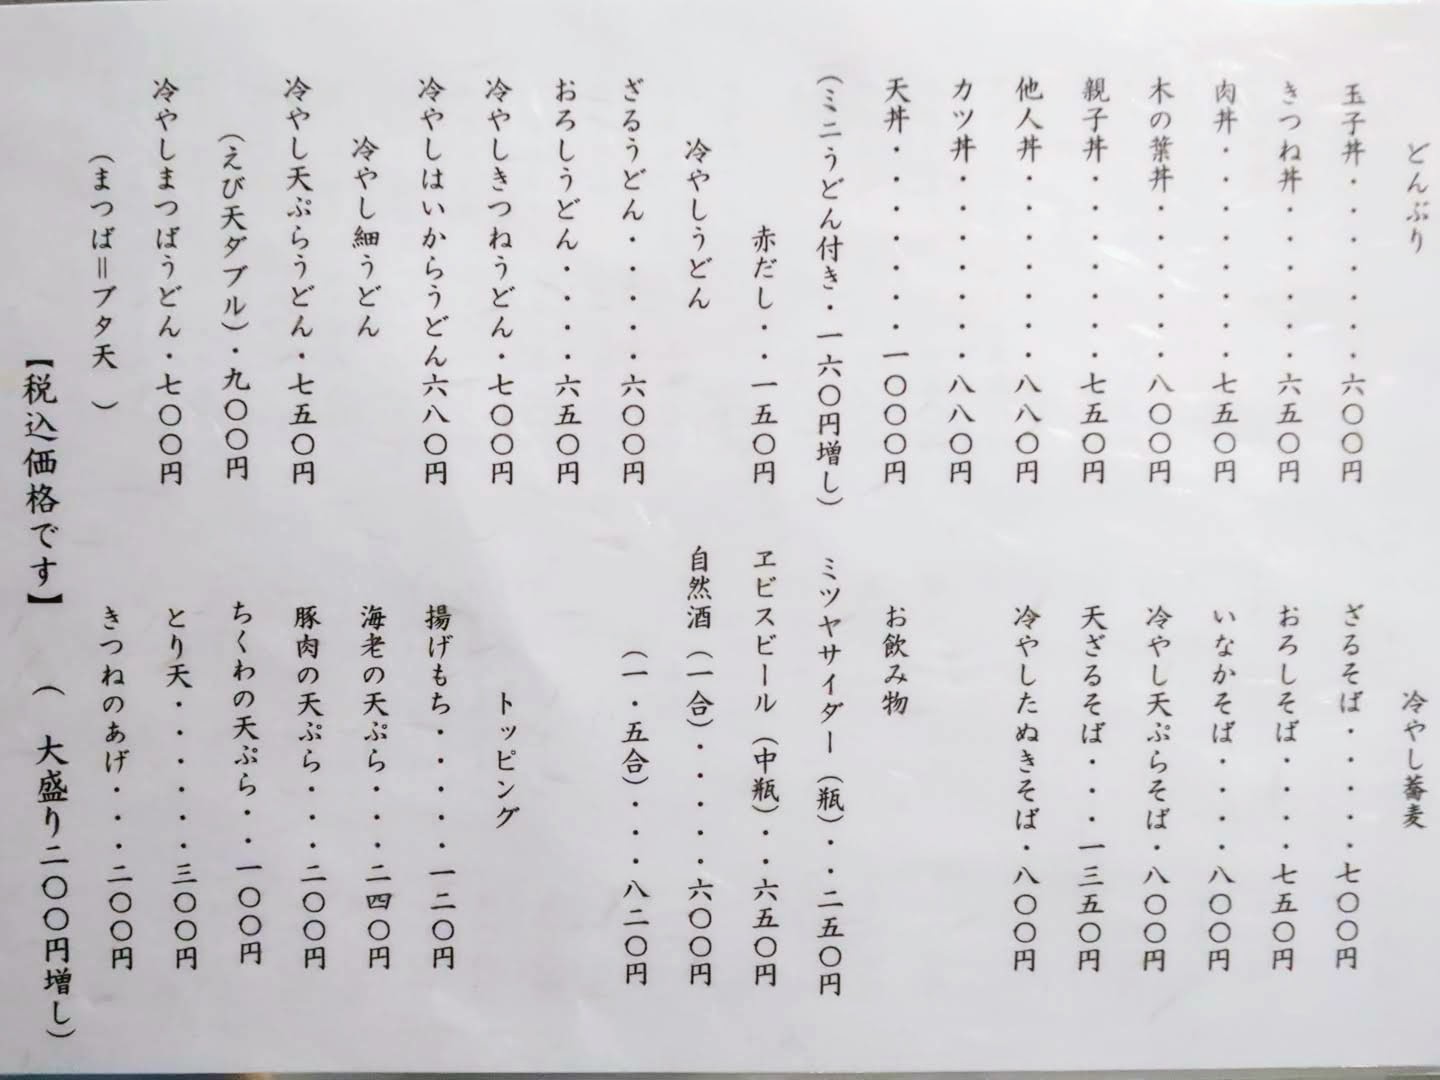 どんぶり
玉子丼・・・・・・・六〇〇円
きつね丼・・・・・・六五〇円
肉丼・・・・・・・・七五〇円
木の葉丼・・・・・・八〇〇円
親子丼・・・・・・・七五〇円
他人丼・・・・・・・八八〇円
カツ丼・・・・・・・八八〇円
天丼・・・・・・・一〇〇〇円
（ミニうどん付き・一六〇円増し）
赤だし・・・一五〇円
冷やしうどん
ざるうどん・・・・・六〇〇円
おろしうどん・・・・六五〇円
冷やしきつねうどん・七〇〇円
冷やしはいからうどん六八〇円
冷やし細うどん
冷やし天ぷらうどん・七五〇円
（えび天ダブル）・九〇〇円
冷やしまつばうどん・七〇〇円
（まつば＝ブタ天　）
冷やし蕎麦
ざるそば・・・・・七〇〇円
おろしそば・・・・七五〇円
いなかそば・・・・八〇〇円
冷やし天ぷらそば・八〇〇円
天ざるそば・・・一三五〇円
冷やしたぬきそば・八〇〇円
お飲み物
ミツヤサイダー（瓶）・・二五〇円
ヱビスビール（中瓶）・・六五〇円
自然酒（一合）・・・・・六〇〇円
（一・五合）・・・・八二〇円
トッピング
揚げもち・・・・・一二〇円
海老の天ぷら・・・二四〇円
豚肉の天ぷら・・・二〇〇円
ちくわの天ぷら・・一〇〇円
とり天・・・・・・三〇〇円
きつねのあげ・・・二〇〇円
【税込価格です】　（　大盛り二〇〇円増し）